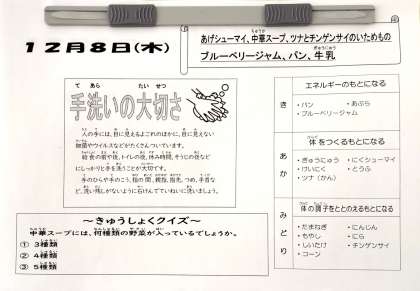 12月8日(木)
あげシューマイ、中華スープ、ツナとチンゲンサイのいためもの
ブルーベリージャム、パン、牛乳
手洗いの大切さ
人の手には、目に見えるよごれのほかに、目に見えない
細菌やウイルスなどがたくさんついています。
給食の前や後、トイレの後、休み時間、そうじの後など
にしっかりと手を洗うことが大切です。
手のひらや手のこう、指の間、親指、指先、つめ、手首な
ど、洗い残しがないように石けんでていねいに洗いましょう。
~きゅうしょくクイズ~
中華スープには、何種類の野菜が入っているでしょうか。
① 3種類
② 4種類
③ 5種類
エネルギーのもとになる
き
・パン ・あぶら
・ブルーベリージャム
体をつくるもとになる
あか
・ぎゅうにゅう ・にくシューマイ
・けいにく ・とうふ
・ツナ(かん)
体の調子をととのえるもとになる
みどり
・たまねぎ ・にんじん
・もやし ・にら
・しいたけ ・チンゲンサイ
・コーン